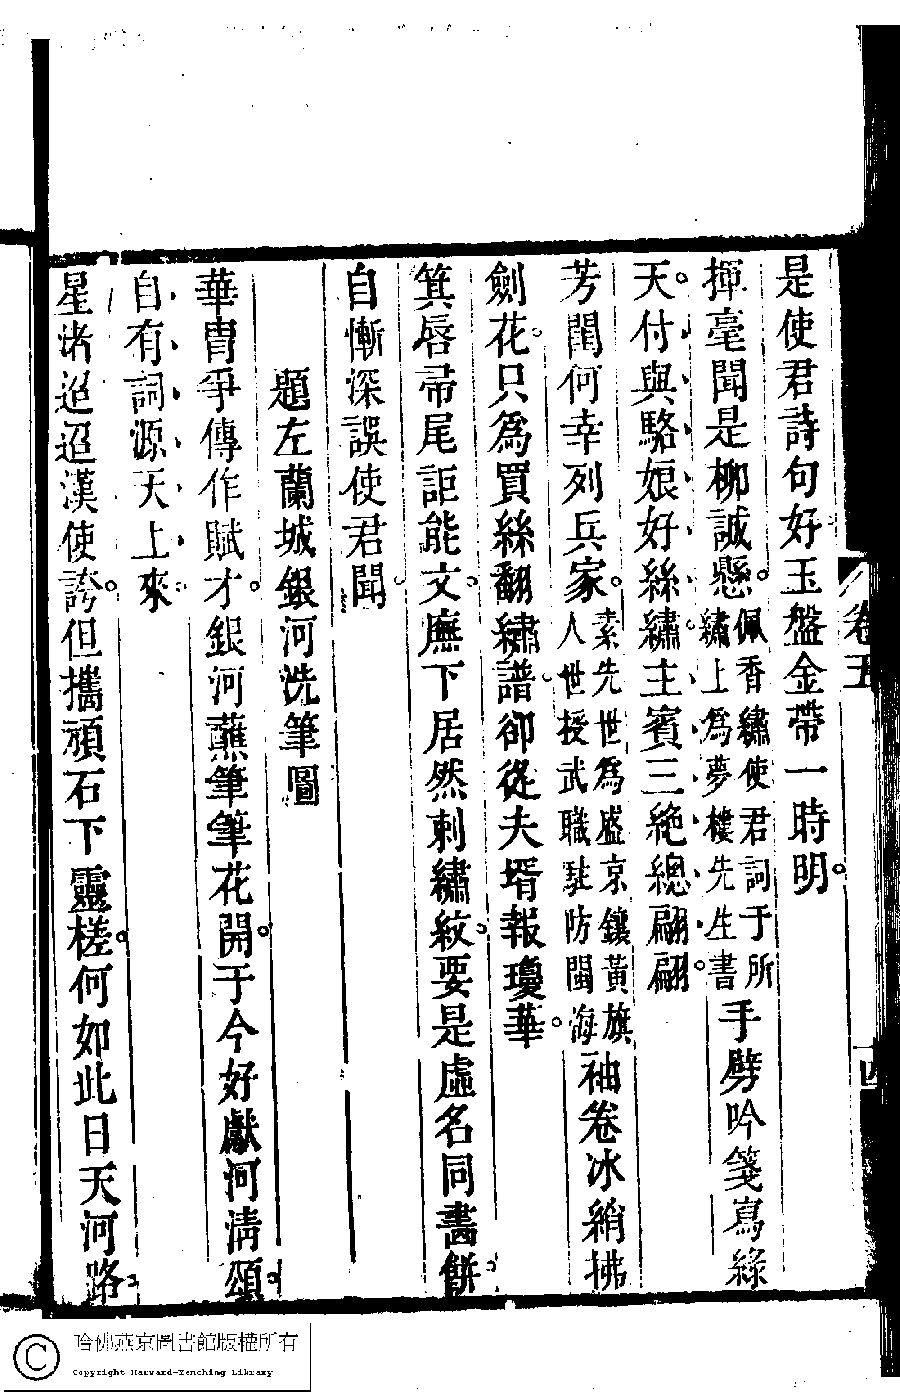 是使君詩句好玉盤金帶一時明
揮毫聞是柳誠懸佩香繡使君詞于所繡上爲夢樓先生書手劈吟箋寫綠
天付與駱娘好絲繡主賓三絕總翩翩
芳閨何幸列兵家素先世爲盛京鑲黃旗人世授武職駐防閩海袖卷冰綃拂
劍花只爲買絲翻繡譜卻從夫壻報瓊華
箕唇帚尾詎能文廡下居然刺繡紋要是虛名同畫餅
自慚深誤使君聞
題左蘭城銀河洗筆圖
華胄爭傳作賦才銀河蘸筆筆花開于今好獻河淸頌
自有詞源天上來
星渚迢迢漢使誇但攜頑石下靈槎何如此日天河路
卷五
四
哈佛燕京圖書館版權所有
Copyright Harvard-Yenching Library